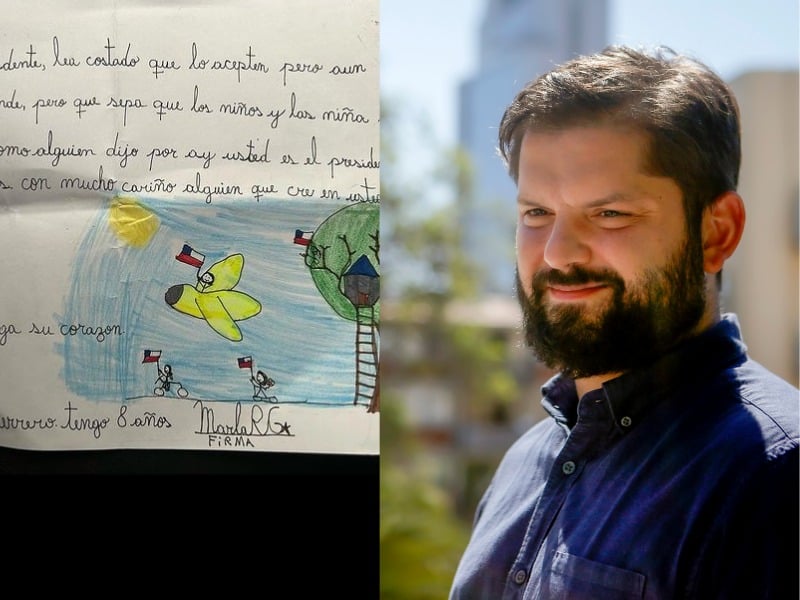 dente, lea costado que lo acepten pero aun
nde, pero que sepa que los niños y las niña
omo alguien dijo por ay usted es el preside
s con mucho cariño alguien que cre en uste
ga su corazon.
errero tengo 8 años MarlaRG
FiRMA